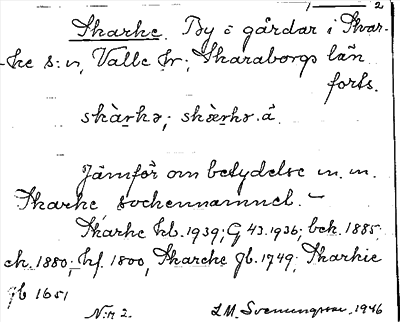 2
Skarke. By o gårdar i Skar-
ke s:n, Valle hr; Skaraborgs län
forts.
skàrkə; skærkə. å
Jämför om betydelse m. m.
Skarke sockennamnet. –
Skarke kl. 1939; G 43. 1936; bek. 1885;
ek. 1880; hf. 1800, Skarche jb. 1749; Skarkie
jb 1651
N:r 2. L.M. Svenungsson, 1946